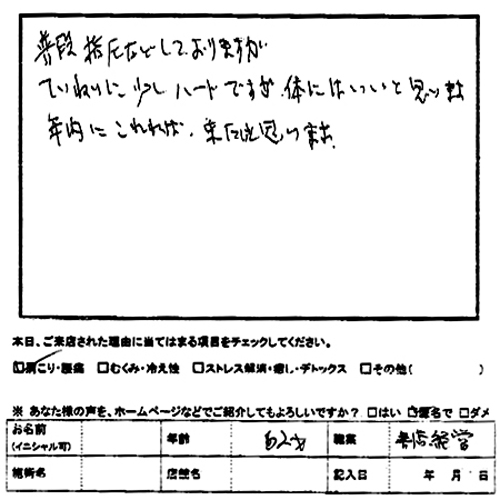 普段 指圧などしておりますが
ていねいに 少し ハードですが、体にはいいと思います
年内に これれば、来たいと思います。
本日、ご来店された理由に当てはまる項目をチェックしてください。
☑肩こり・腰痛 □むくみ・冷え性 □ストレス解消・癒し・デトックス □その他( )
※ あなた様の声を、ホームページなどでご紹介してもよろしいですか? □はい ☑匿名で □ダメ
お名前 (イニシャル可) 年齢 62才 職業 書店経営
施術名 店舗名 記入日 年 月 日